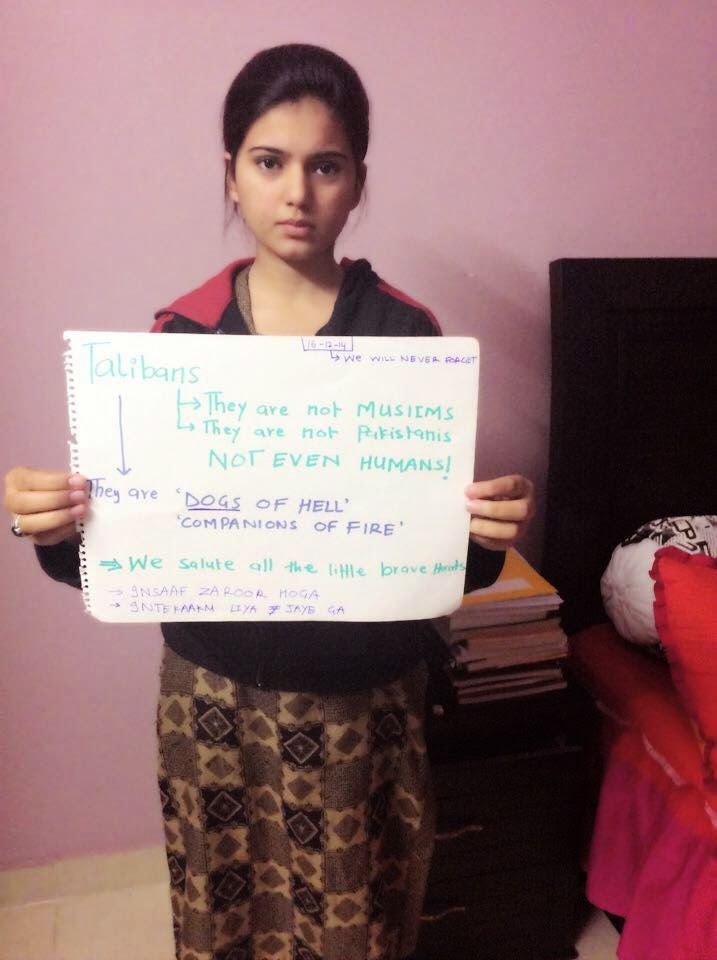 16-12-14
↳ WE WILL NEVER FORGET
Talibans
→ They are not MUSlIMS
→ They are not Pakistanis
NOT EVEN HUMANS!
They are 'DOGS OF HELL'
'COMPANIONS OF FIRE'
⇒ We salute all the little brave
→ INSAAF ZAROOR HOGA
→ INTEKAAKM LIYA JAYE GA